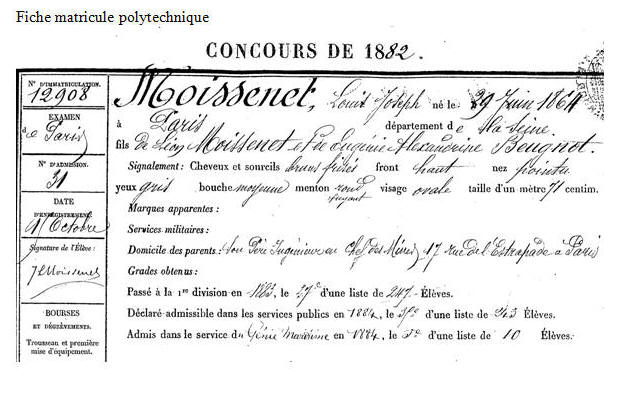 Fiche matricule polytechnique
CONCOURS DE 1882.
N° D'IMMATRICULATION.
12908
EXAMEN
de Paris
N° D'ADMISSION.
31
DATE
D'ENREGISTREMENT.
Octobre
Signature de l'Élève :
JLMoissenet
BOURSES
ET DÉGRÈVEMENTS.
Trousseau et première
mise d'équipement.
Moissenet, Louis Joseph né le 29 Juin 1864
à Paris département de la Seine.
fils de Léon Moissenet et Eugénie Alexandrine Beugnot.
Signalement : Cheveux et sourcils bruns frisés front haut nez pointu
yeux gris bouche moyenne menton rond fuyant visage ovale taille d'un mètre 71 centim.
Marques apparentes :
Services militaires :
Domicile des parents : Son Père Ingénieur en Chef des Mines, 17 rue de l'Estrapade à Paris
Grades obtenus :
Passé à la 1re division en 1883, le 27e d'une liste de 247 Élèves.
Déclaré admissible dans les services publics en 1884, le d'une liste de 243 Élèves.
Admis dans le service du Génie Maritime en 1884, le d'une liste de 10 Élèves.